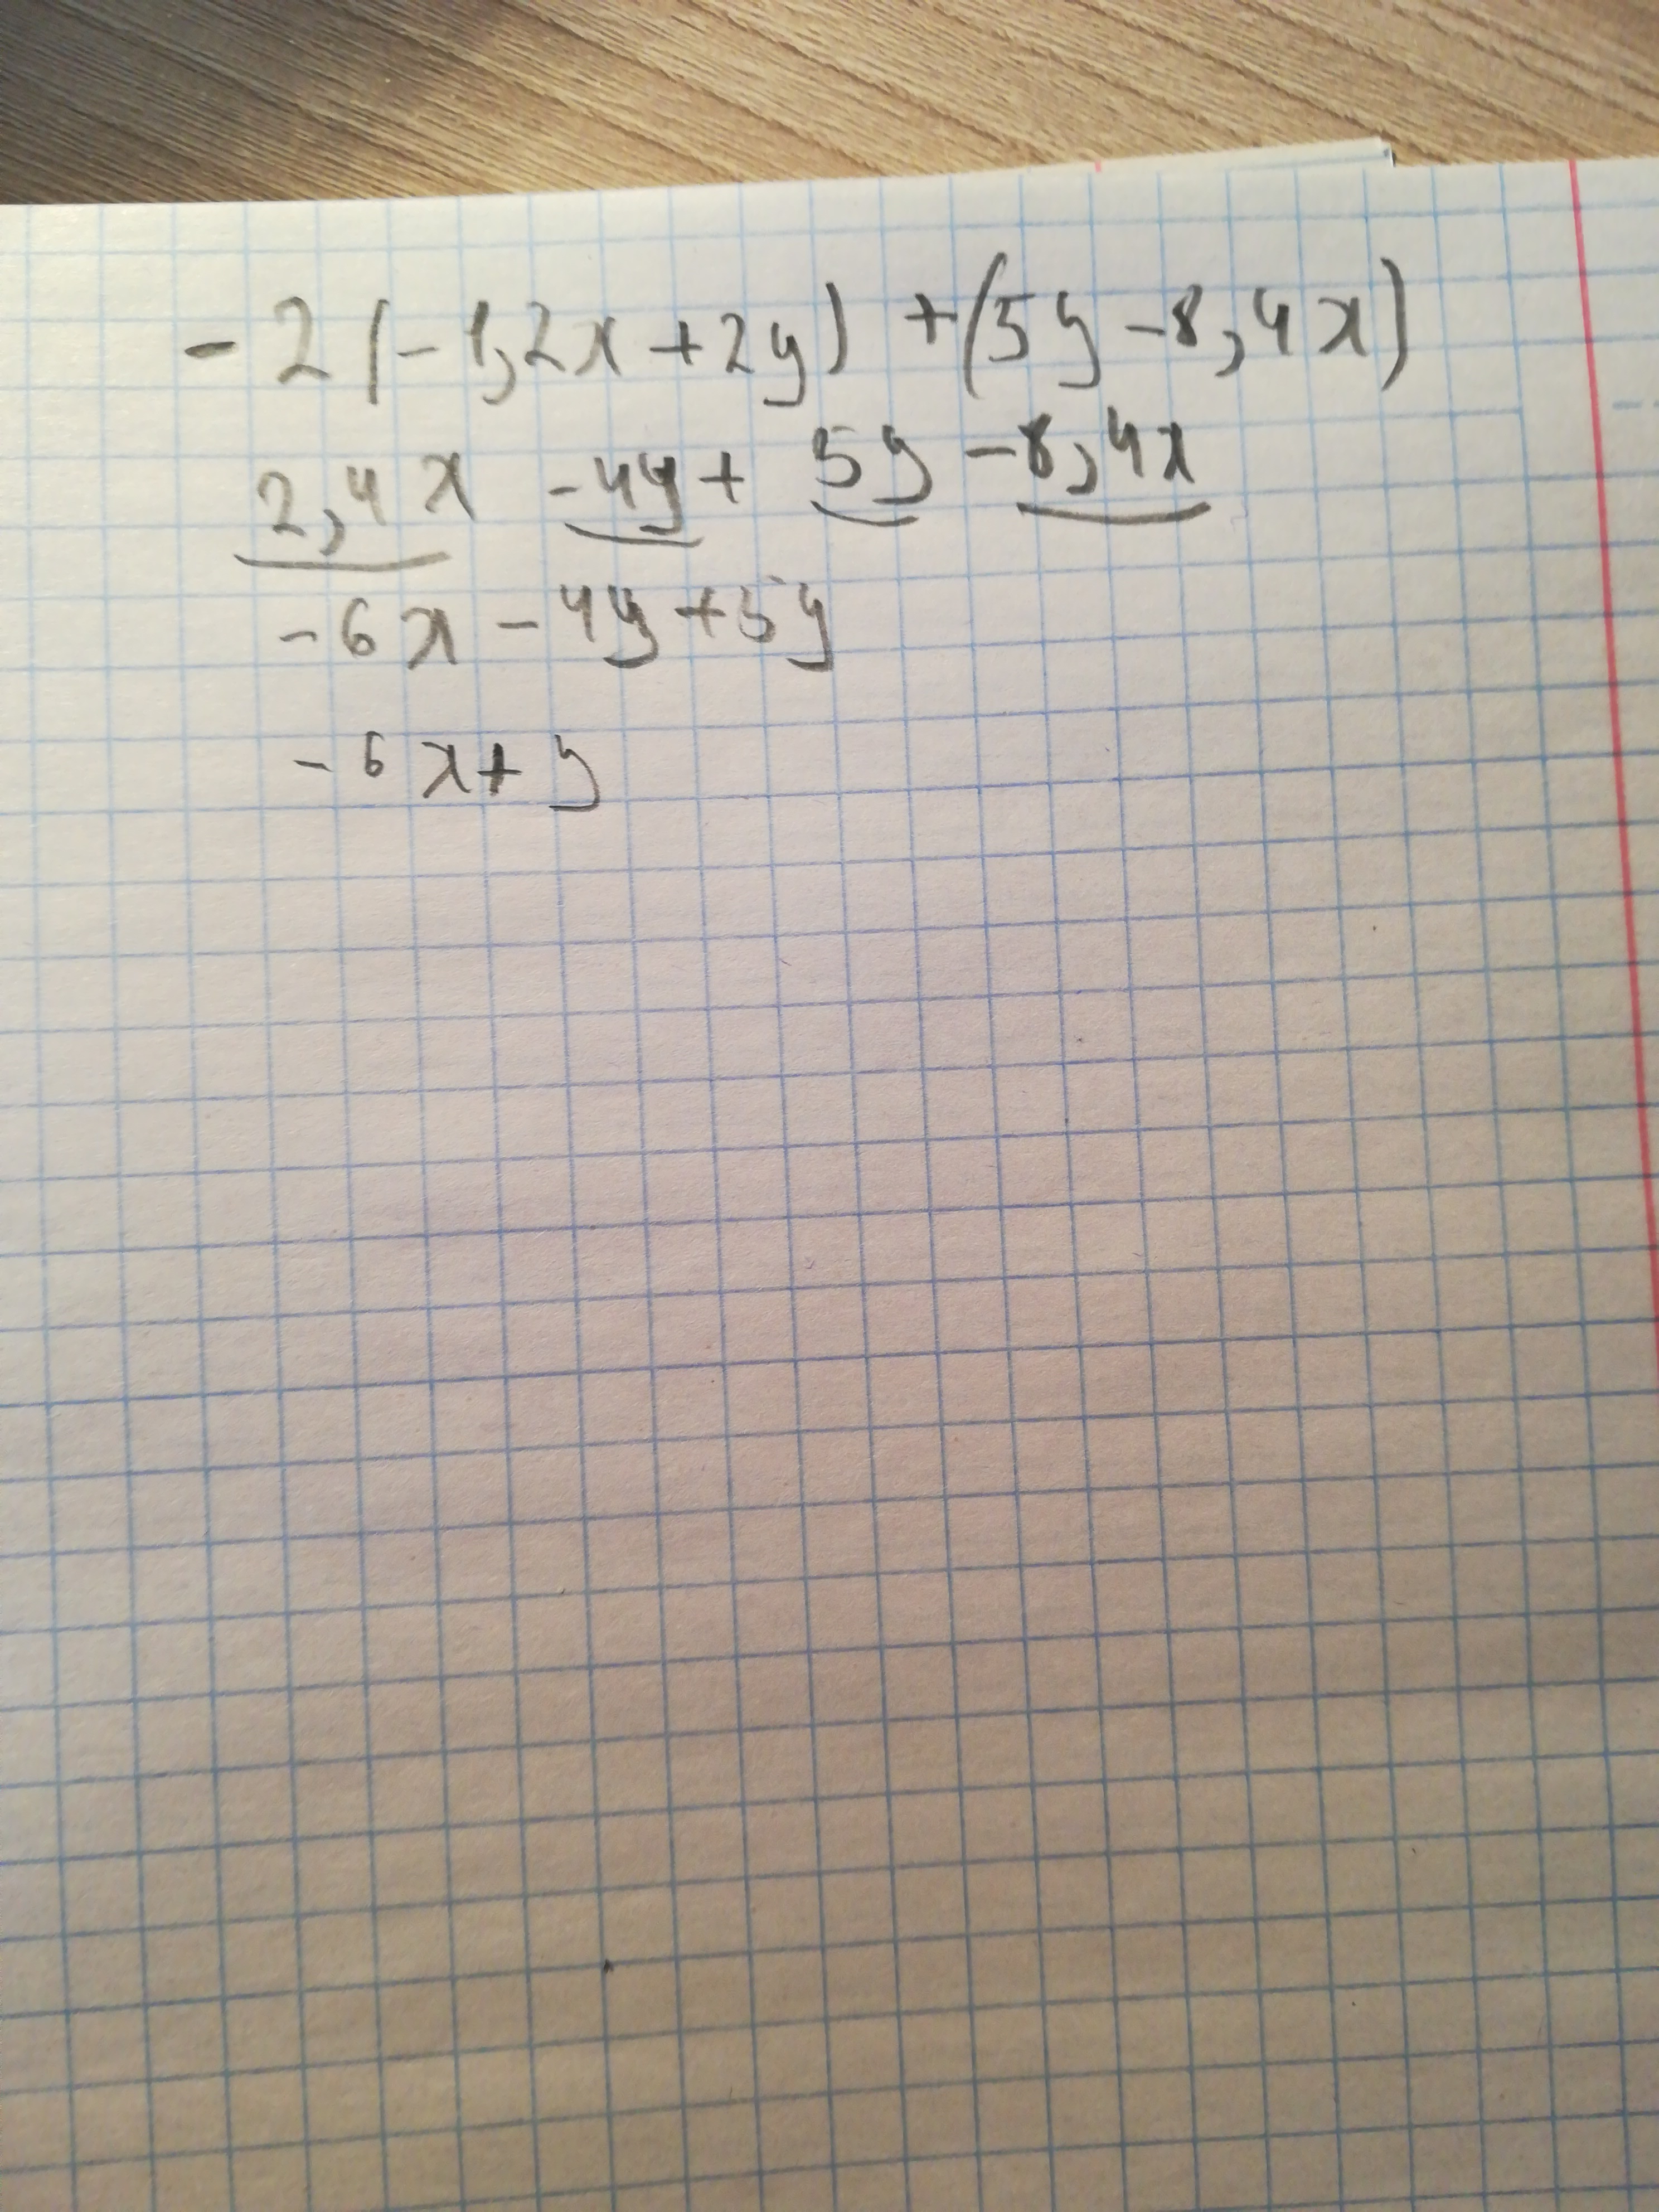 - 2 (-1,2x + 2y) + (5y - 8,4x)
2,4x - 4y + 5y - 8,4x
- 6x - 4y + 5y
- 6x + y